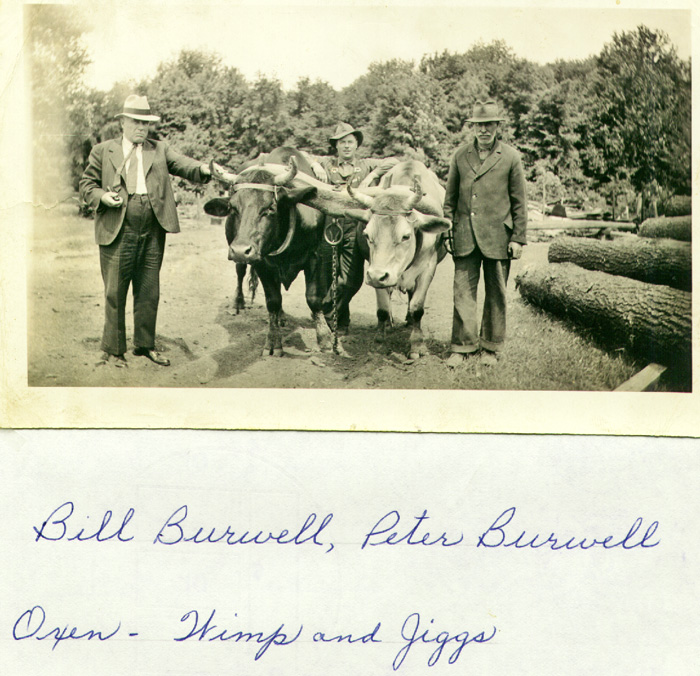 Bill Burwell, Peter Burwell
Oxen - Wimp and Jiggs